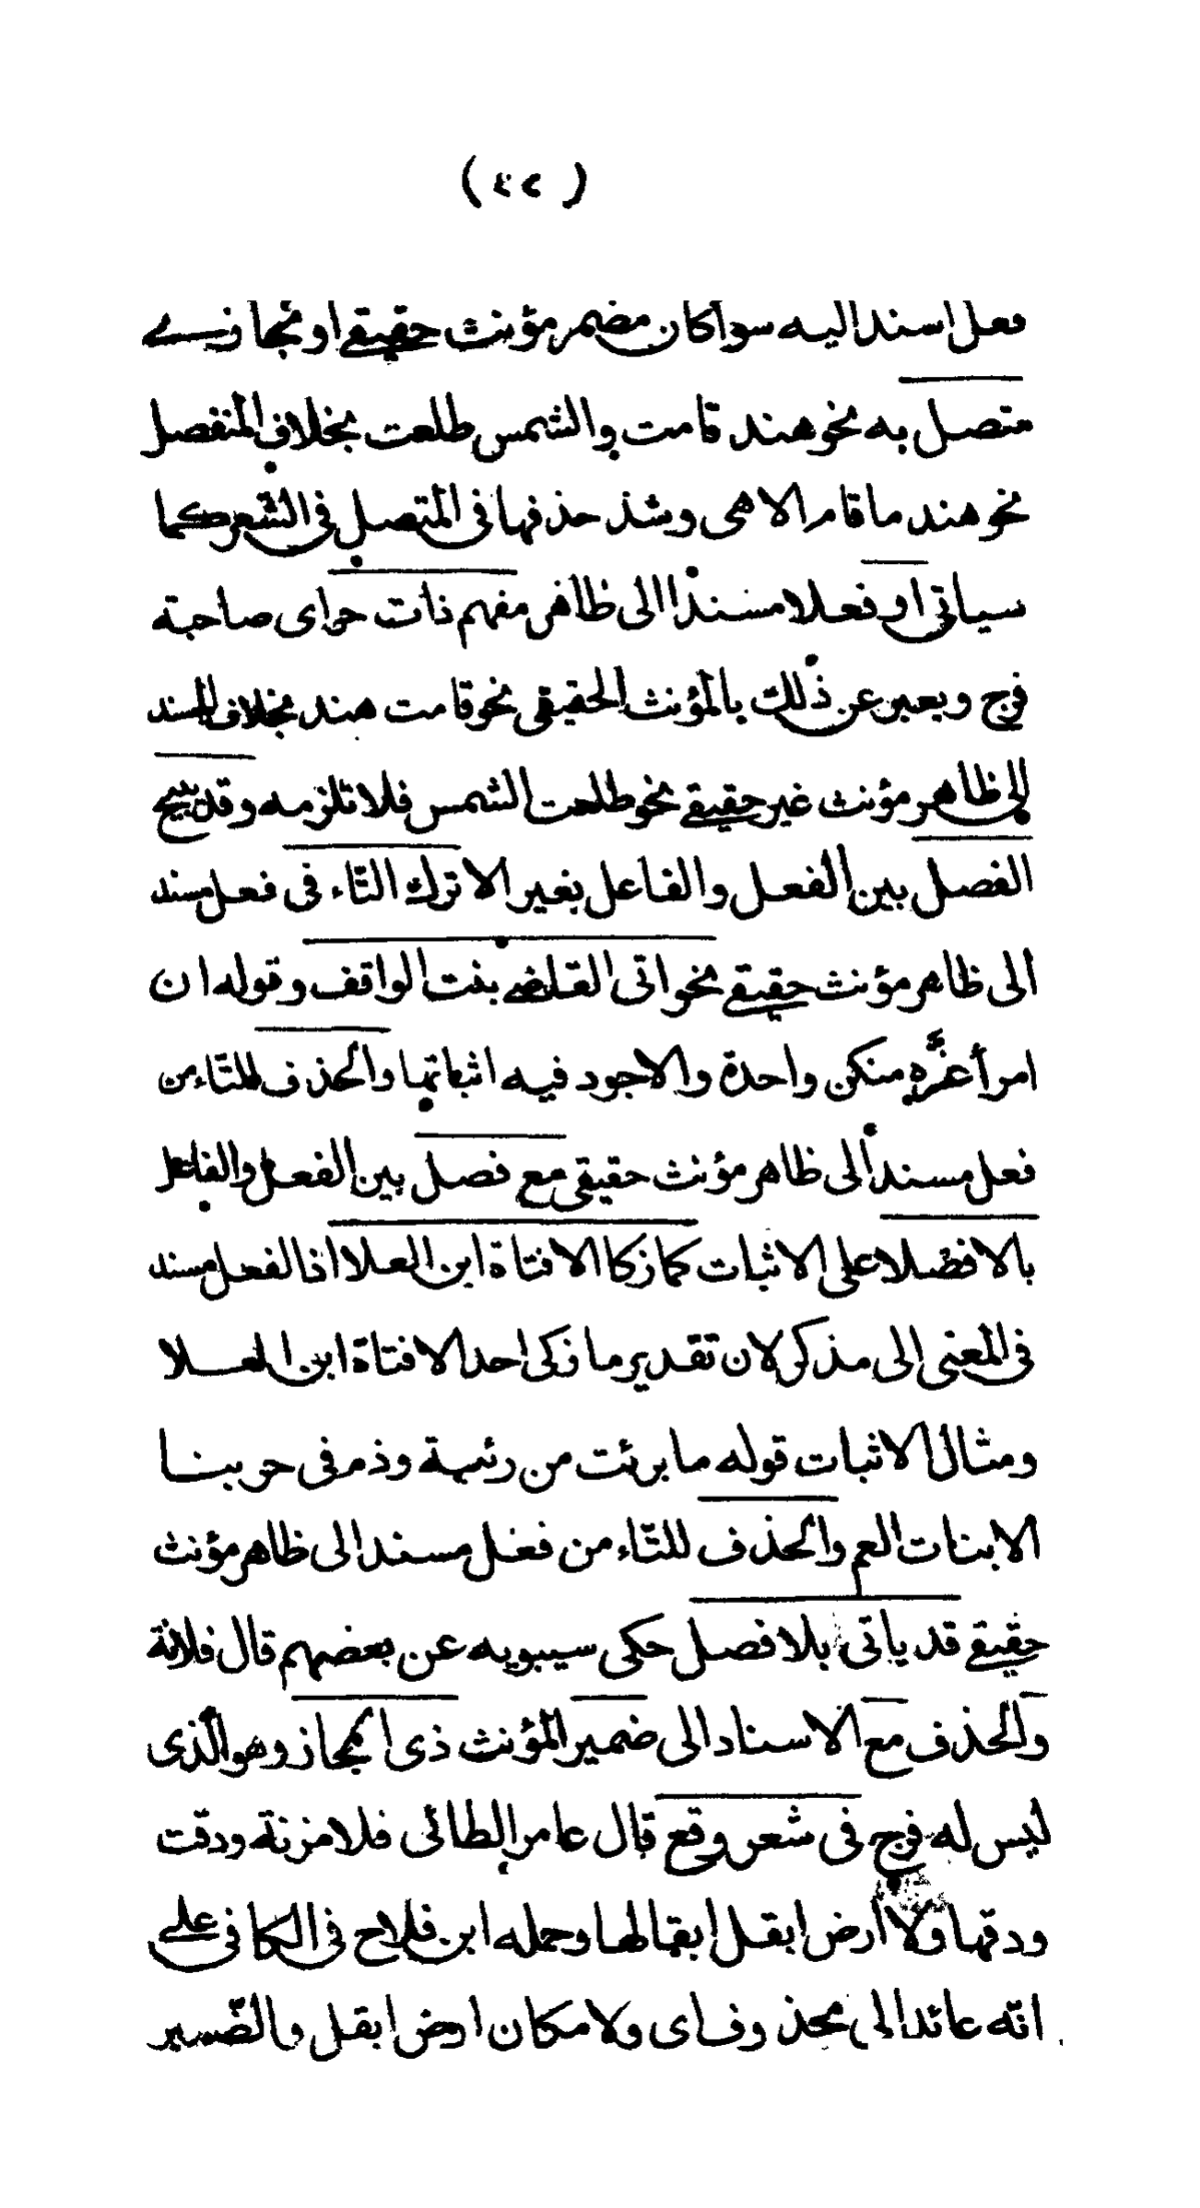 فعل اسند اليه سوا كان مضمر مؤنث حقيقي او مجازي
متصل به نحو هند قامت والشمس طلعت بخلاف المنفصل
نحو هند ما قام الا هي وشذ حذفها في المتصل في الشعر كما
سياتي او فعلا مسندا الى ظاهر مفهم ذات حر اى صاحبة
فرج ويعبر عن ذلك بالمؤنث الحقيقي نحو قامت هند بخلاف المسند
الى ظاهر مؤنث غير حقيقي نحو طلعت الشمس فلا تلزمه وقد يبيح
الفصل بين الفعل والفاعل بغير الا ترك التّاء في فعل مسند
الى ظاهر مؤنث حقيقي نحو اتى القاضي بنت الواقف وقوله ان
امرأ غرَّه منكن واحدة والاجود فيه اثباتها والحذف للتّاء من
فعل مسند الى ظاهر مؤنث حقيقي مع فصل بين الفعل والفاعل
بالا فضلا على الاثبات كما زكا الا فتاة ابن العلا اذ الفعل مسند
في المعنى الى مذكر لان تقدير ما زكى احد الا فتاة ابن العلا
ومثال الاثبات قوله ما برئت من رئيبة وذم في حربنا
الا بنات العم والحذف للتّاء من فعل مسند الى ظاهر مؤنث
حقيقي قد ياتى بلا فصل حكى سيبويه عن بعضهم قال فلانة
والحذف مع الاسناد الى ضمير المؤنث ذى المجاز وهو الّذى
ليس له فرج في شعر وقع قال عامر الطائى فلا مزنة ودقت
ودقها ولا ارض ابقل ابقالها وحمله ابن فلاح في الكافي على
انّه عائد الى محذوف اى ولا مكان ارض ابقل والضّمير